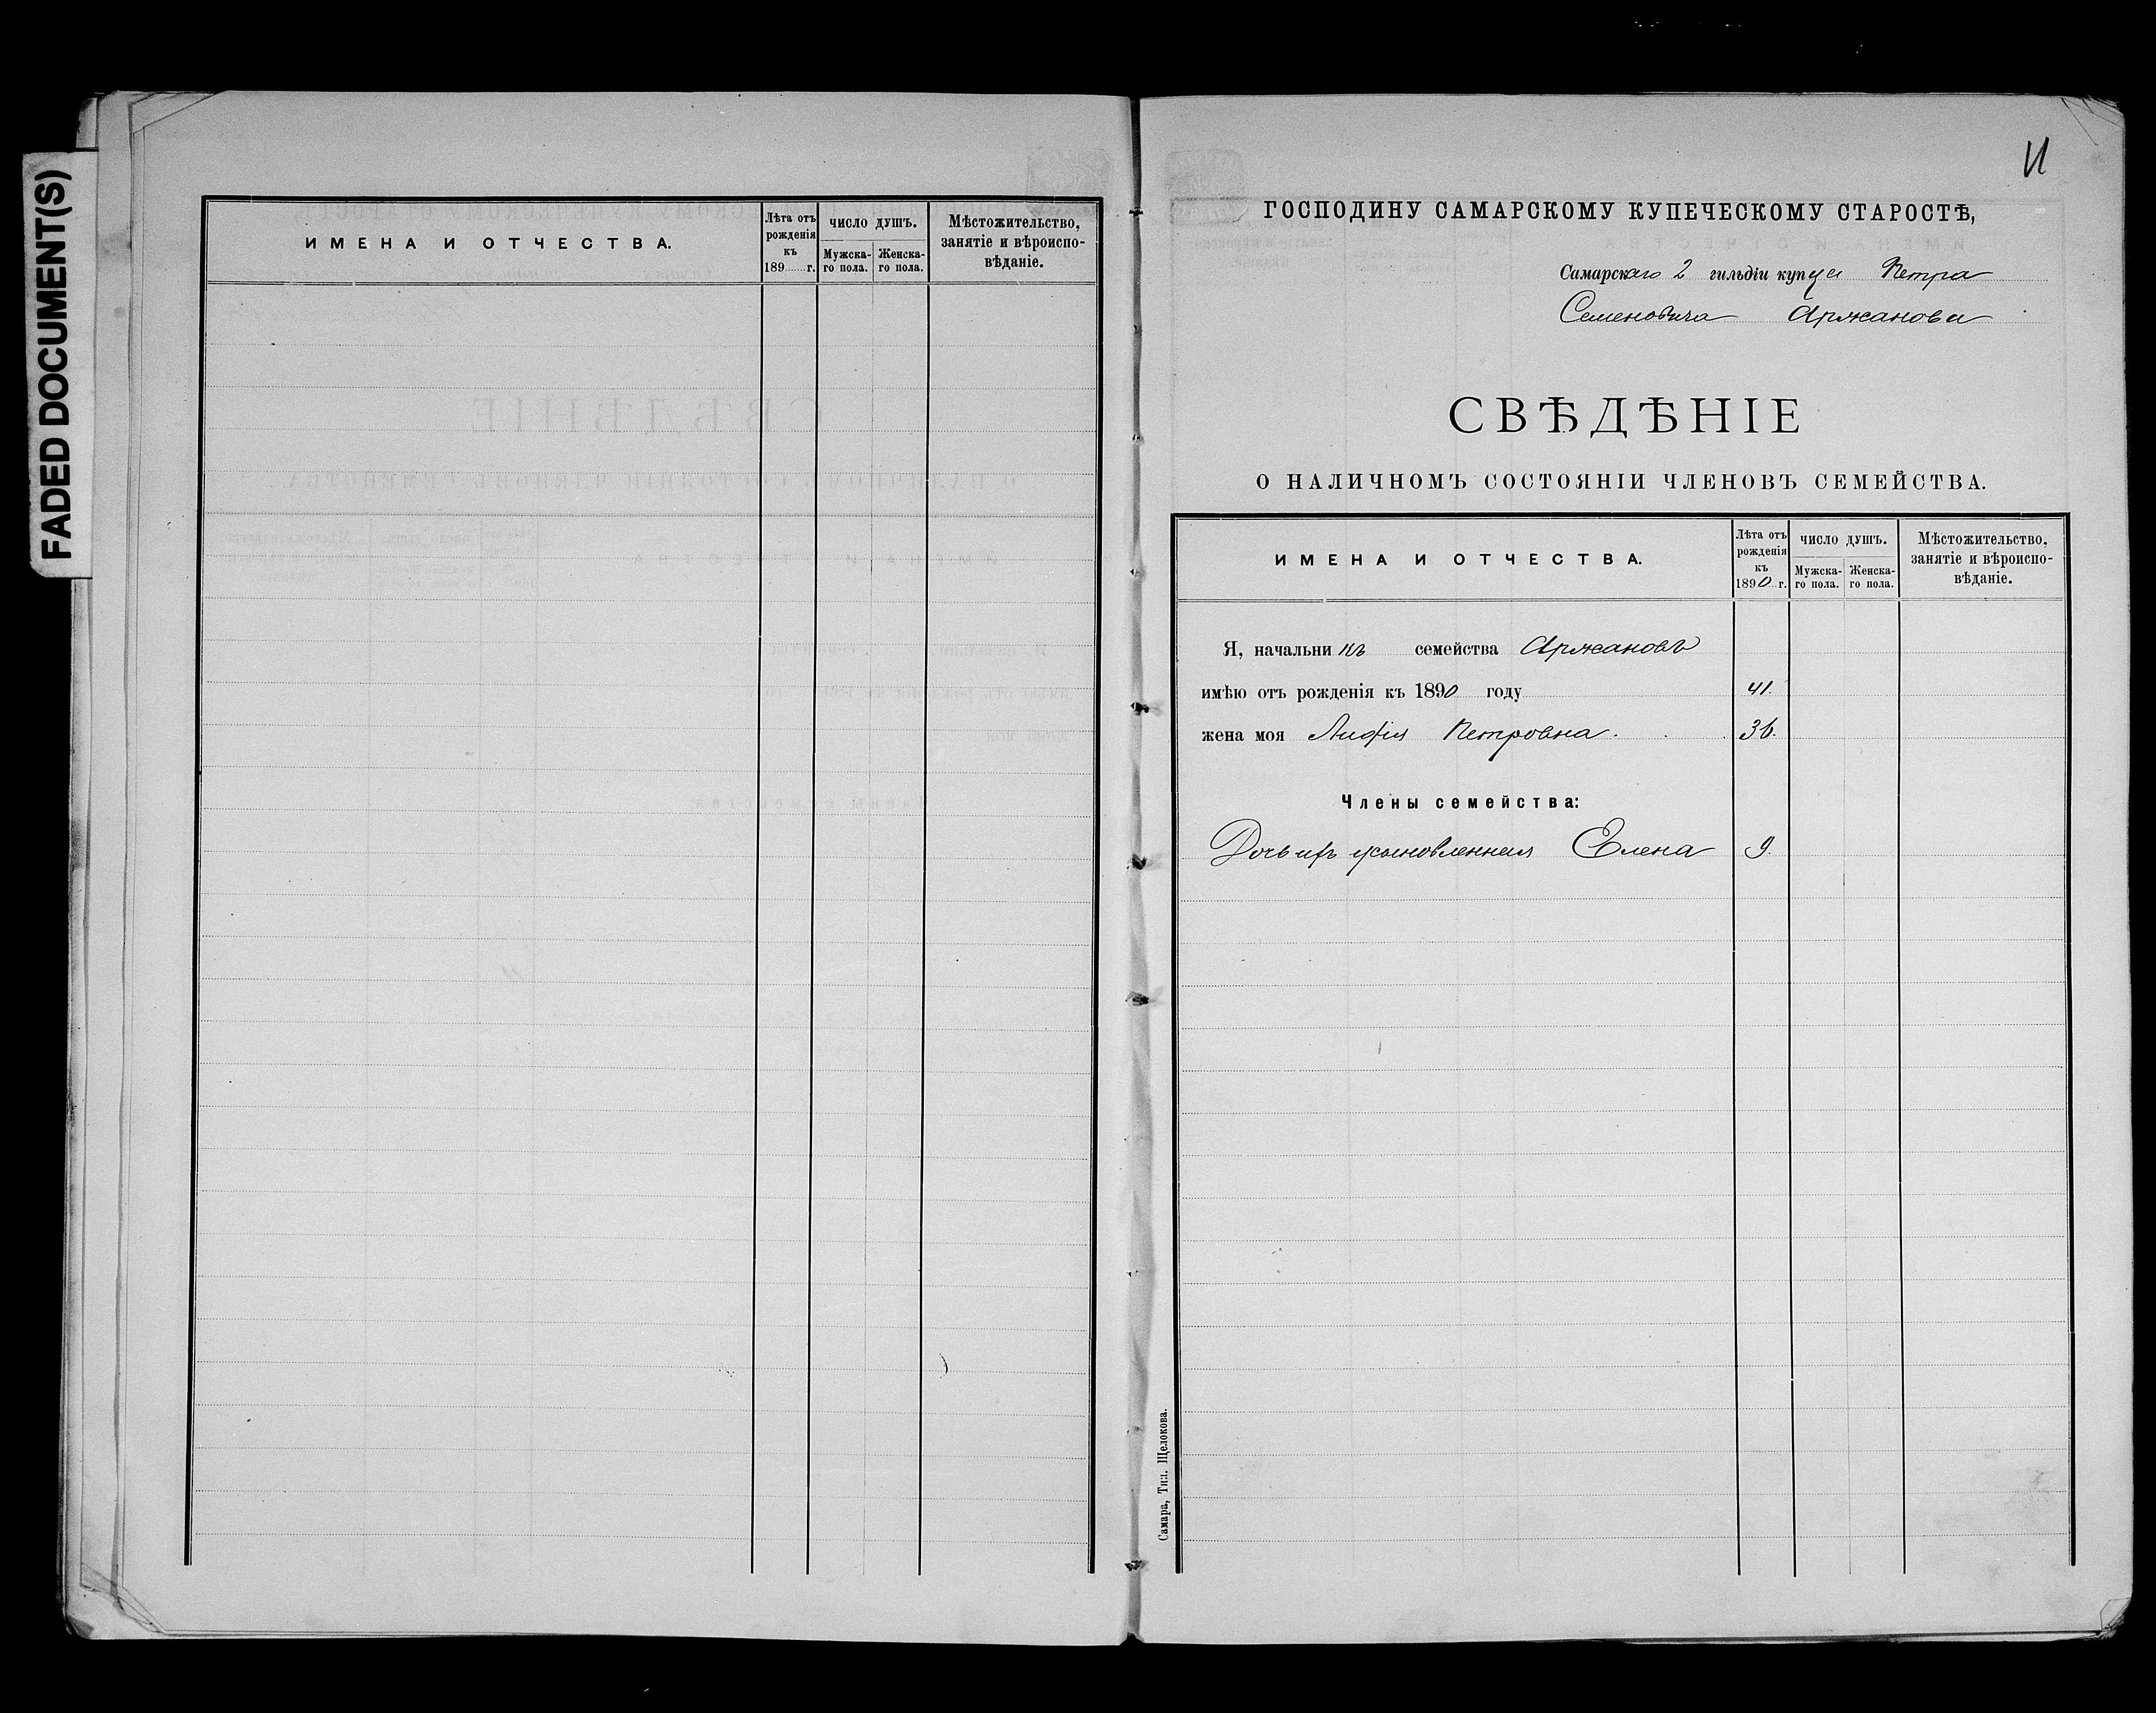 FADED DOCUMENT(S)
ИМЕНА И ОТЧЕСТВА.
Лѣта отъ рожденія къ 189 г.
ЧИСЛО ДУШЪ.
Мужска-го пола.
Женска-го пола.
Мѣстожительство, занятіе и вѣроиспо-вѣданіе.
11
ГОСПОДИНУ САМАРСКОМУ КУПЕЧЕСКОМУ СТАРОСТѢ,
Самарскаго 2 гильдіи купца Петра
Семеновича Аржанова
СВѢДѢНІЕ
О НАЛИЧНОМЪ СОСТОЯНІИ ЧЛЕНОВЪ СЕМЕЙСТВА.
ИМЕНА И ОТЧЕСТВА.
Лѣта отъ рожденія къ 1890 г.
ЧИСЛО ДУШЪ.
Мужска-го пола.
Женска-го пола.
Мѣстожительство, занятіе и вѣроиспо-вѣданіе.
Я, начальникъ семейства Аржановъ
имѣю отъ рожденія къ 1890 году 41.
жена моя Петровна. 36.
Члены семейства:
Дочь ихъ усыновленная Елена 9.
Самара, Тип. Щелокова.